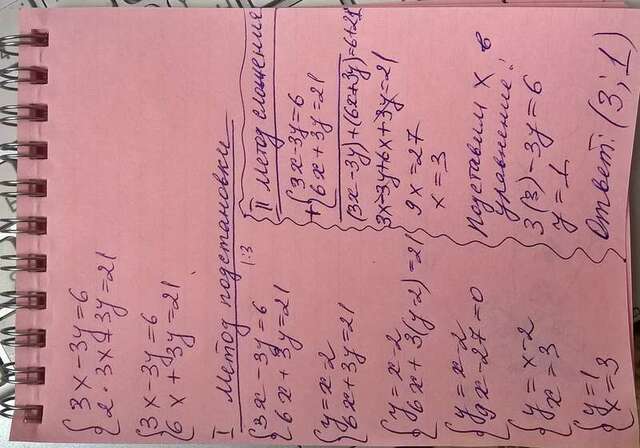 {3x-3y=6
{2·3x+3y=21
{3x-3y=6
{6x+3y=21
I Метод подстановки
{3x-3y=6 |:3
{6x+3y=21
{y=x-2
{6x+3y=21
{y=x-2
{6x+3(y-2)=21
{y=x-2
{9x-27=0
{y=x-2
{x=3
{y=1
{x=3
II Метод сложения
+{3x-3y=6
{6x+3y=21
(3x-3y)+(6x+3y)=6+21
3x-3y+6x+3y=21
9x=27
x=3
Подставим x в
уравнение:
3(3)-3y=6
y=1
Ответ: (3;1)